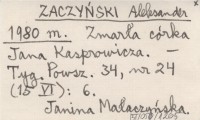 ZACZYŃSKI Aleksander
1980 m. Zmarła córka
Jana Kasprowicza. —
Tyg. Powsz. 34, nr 24
(15 VI): 6.
Janina Małaczyńska.